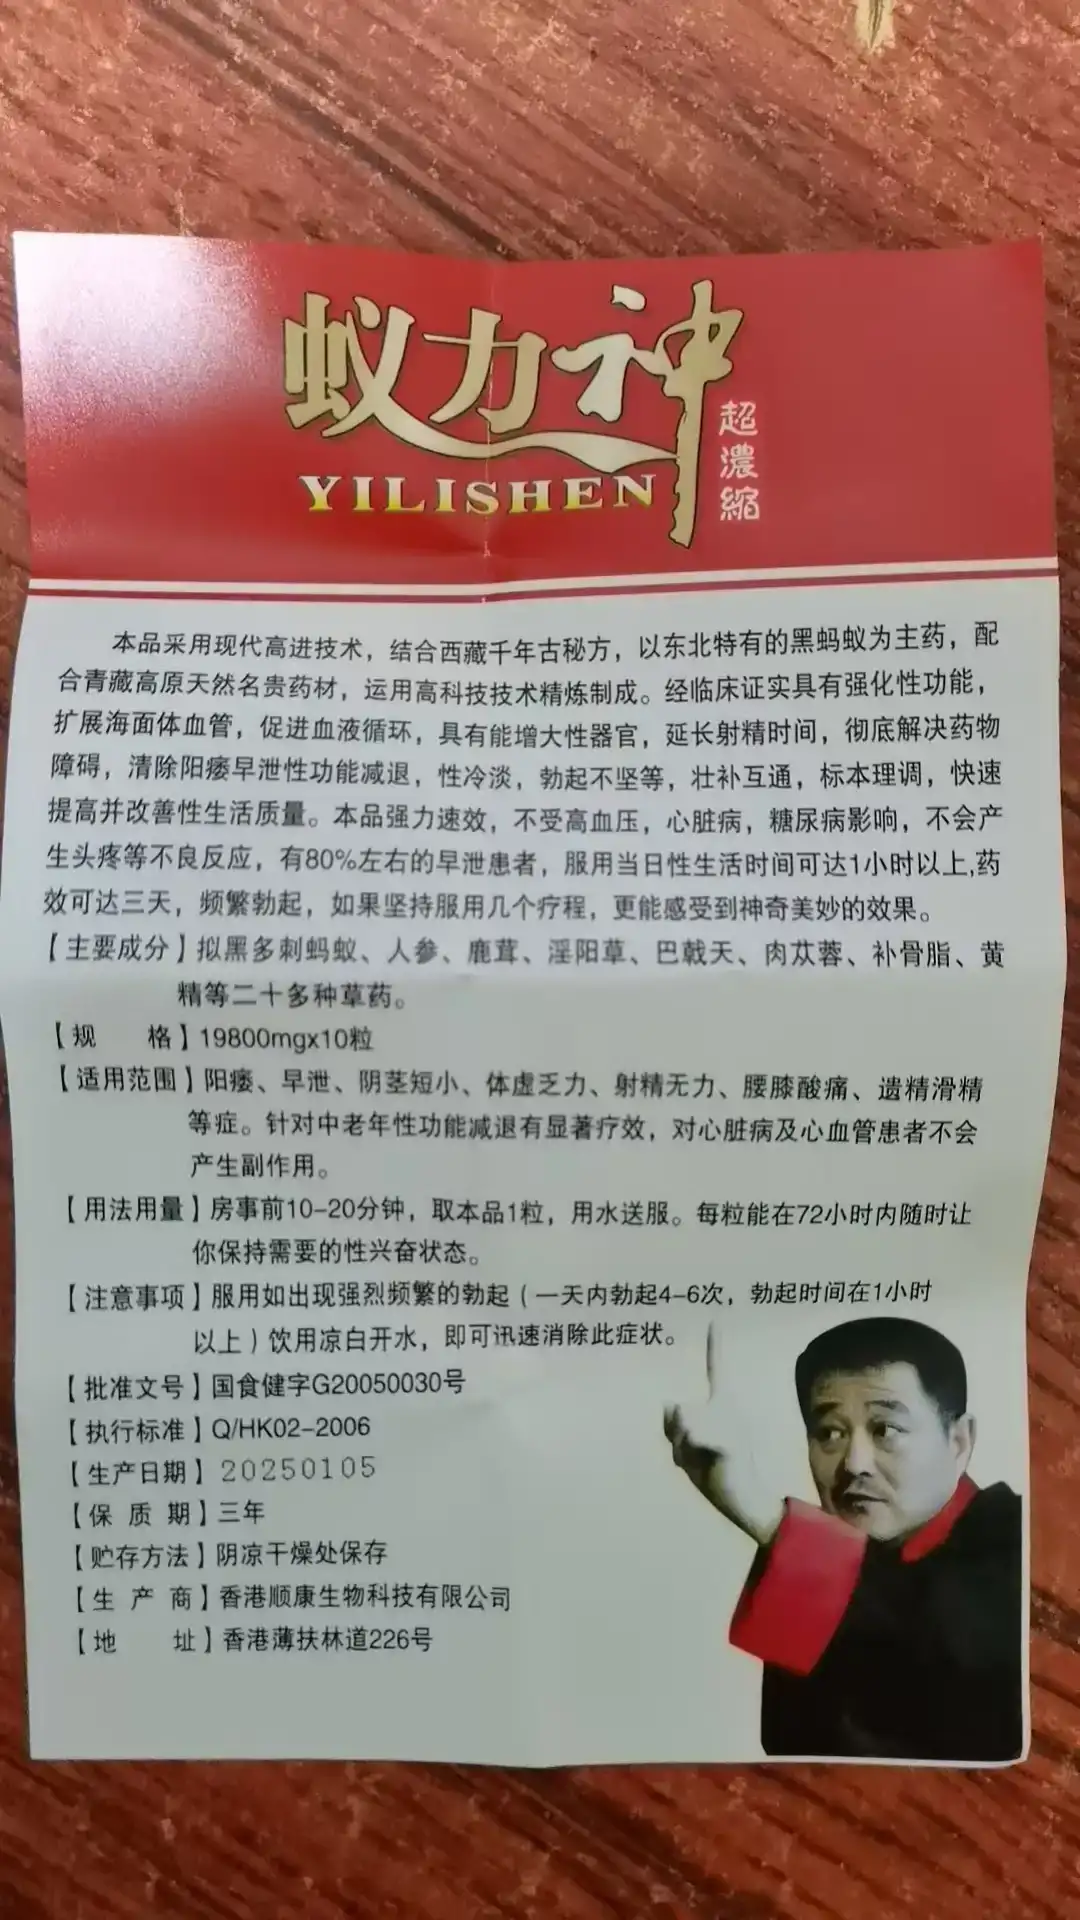 蚁力神
超濃縮
YILISHEN
本品采用现代高进技术，结合西藏千年古秘方，以东北特有的黑蚂蚁为主药，配
合青藏高原天然名贵药材，运用高科技技术精炼制成。经临床证实具有强化性功能，
扩展海面体血管，促进血液循环，具有能增大性器官，延长射精时间，彻底解决药物
障碍，清除阳痿早泄性功能减退，性冷淡，勃起不坚等，壮补互通，标本理调，快速
提高并改善性生活质量。本品强力速效，不受高血压，心脏病，糖尿病影响，不会产
生头疼等不良反应，有80%左右的早泄患者，服用当日性生活时间可达1小时以上,药
效可达三天，频繁勃起，如果坚持服用几个疗程，更能感受到神奇美妙的效果。
【主要成分】拟黑多刺蚂蚁、人参、鹿茸、淫阳草、巴戟天、肉苁蓉、补骨脂、黄
精等二十多种草药。
【规 格】19800mgx10粒
【适用范围】阳痿、早泄、阴茎短小、体虚乏力、射精无力、腰膝酸痛、遗精滑精
等症。针对中老年性功能减退有显著疗效，对心脏病及心血管患者不会
产生副作用。
【用法用量】房事前10-20分钟，取本品1粒，用水送服。每粒能在72小时内随时让
你保持需要的性兴奋状态。
【注意事项】服用如出现强烈频繁的勃起（一天内勃起4-6次，勃起时间在1小时
以上）饮用凉白开水，即可迅速消除此症状。
【批准文号】国食健字G20050030号
【执行标准】Q/HK02-2006
【生产日期】20250105
【保 质 期】三年
【贮存方法】阴凉干燥处保存
【生 产 商】香港顺康生物科技有限公司
【地 址】香港薄扶林道226号